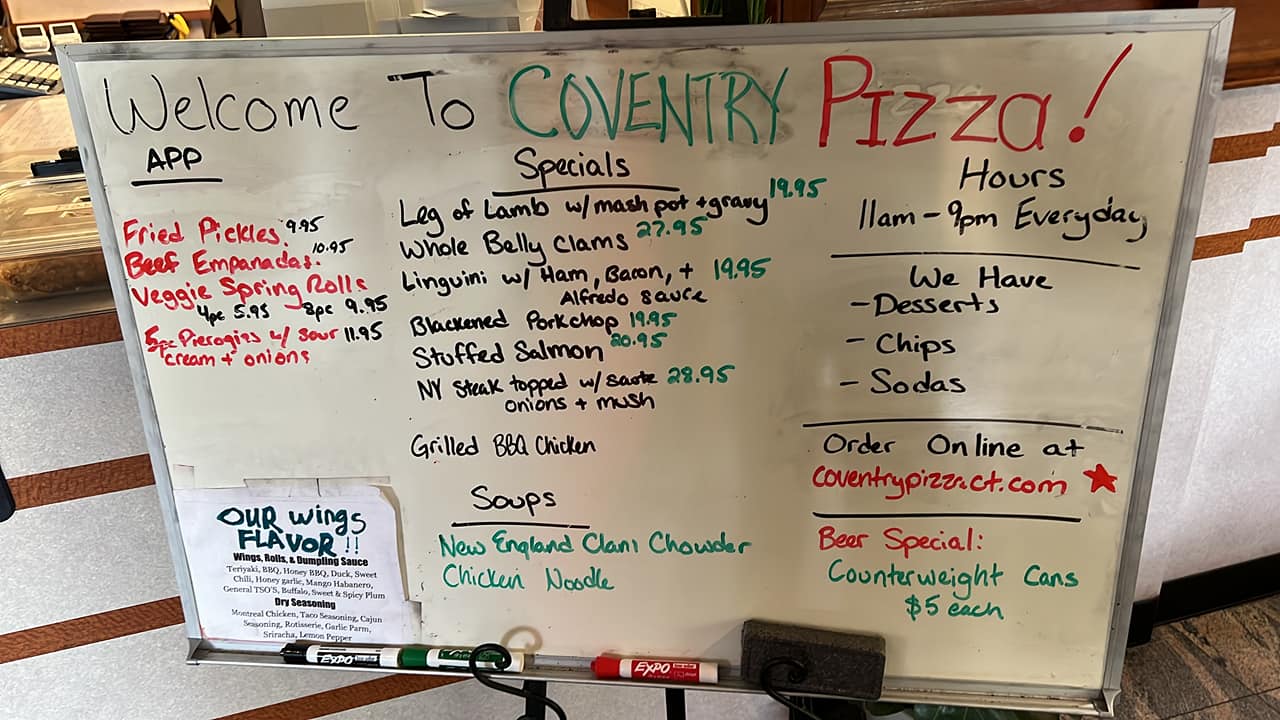 Welcome To COVENTRY Pizza!
APP
Fried Pickles. 9.95
Beef Empanadas. 10.95
Veggie Spring Rolls
4pc 5.95 8pc 9.95
5pc Pierogies w/ sour 11.95
cream + onions
OUR wings
FLAVOR!!
Wings, Rolls, & Dumpling Sauce
Teriyaki, BBQ, Honey BBQ, Duck, Sweet
Chili, Honey garlic, Mango Habanero,
General TSO'S, Buffalo, Sweet & Spicy Plum
Dry Seasoning
Montreal Chicken, Taco Seasoning, Cajun
Seasoning, Rotisserie, Garlic Parm,
Sriracha, Lemon Pepper
Specials
Leg of Lamb w/ mash pot + gravy 19.95
Whole Belly Clams 27.95
Linguini w/ Ham, Bacon, + 19.95
Alfredo sauce
Blackened Porkchop 19.95
Stuffed Salmon 20.95
NY Steak topped w/ saute 28.95
onions + mush
Grilled BBQ Chicken
Soups
New England Clam Chowder
Chicken Noodle
Hours
11am - 9pm Everyday
We Have
- Desserts
- Chips
- Sodas
Order Online at
coventrypizzact.com
Beer Special:
Counterweight Cans
$5 each
EXPO
EXPO